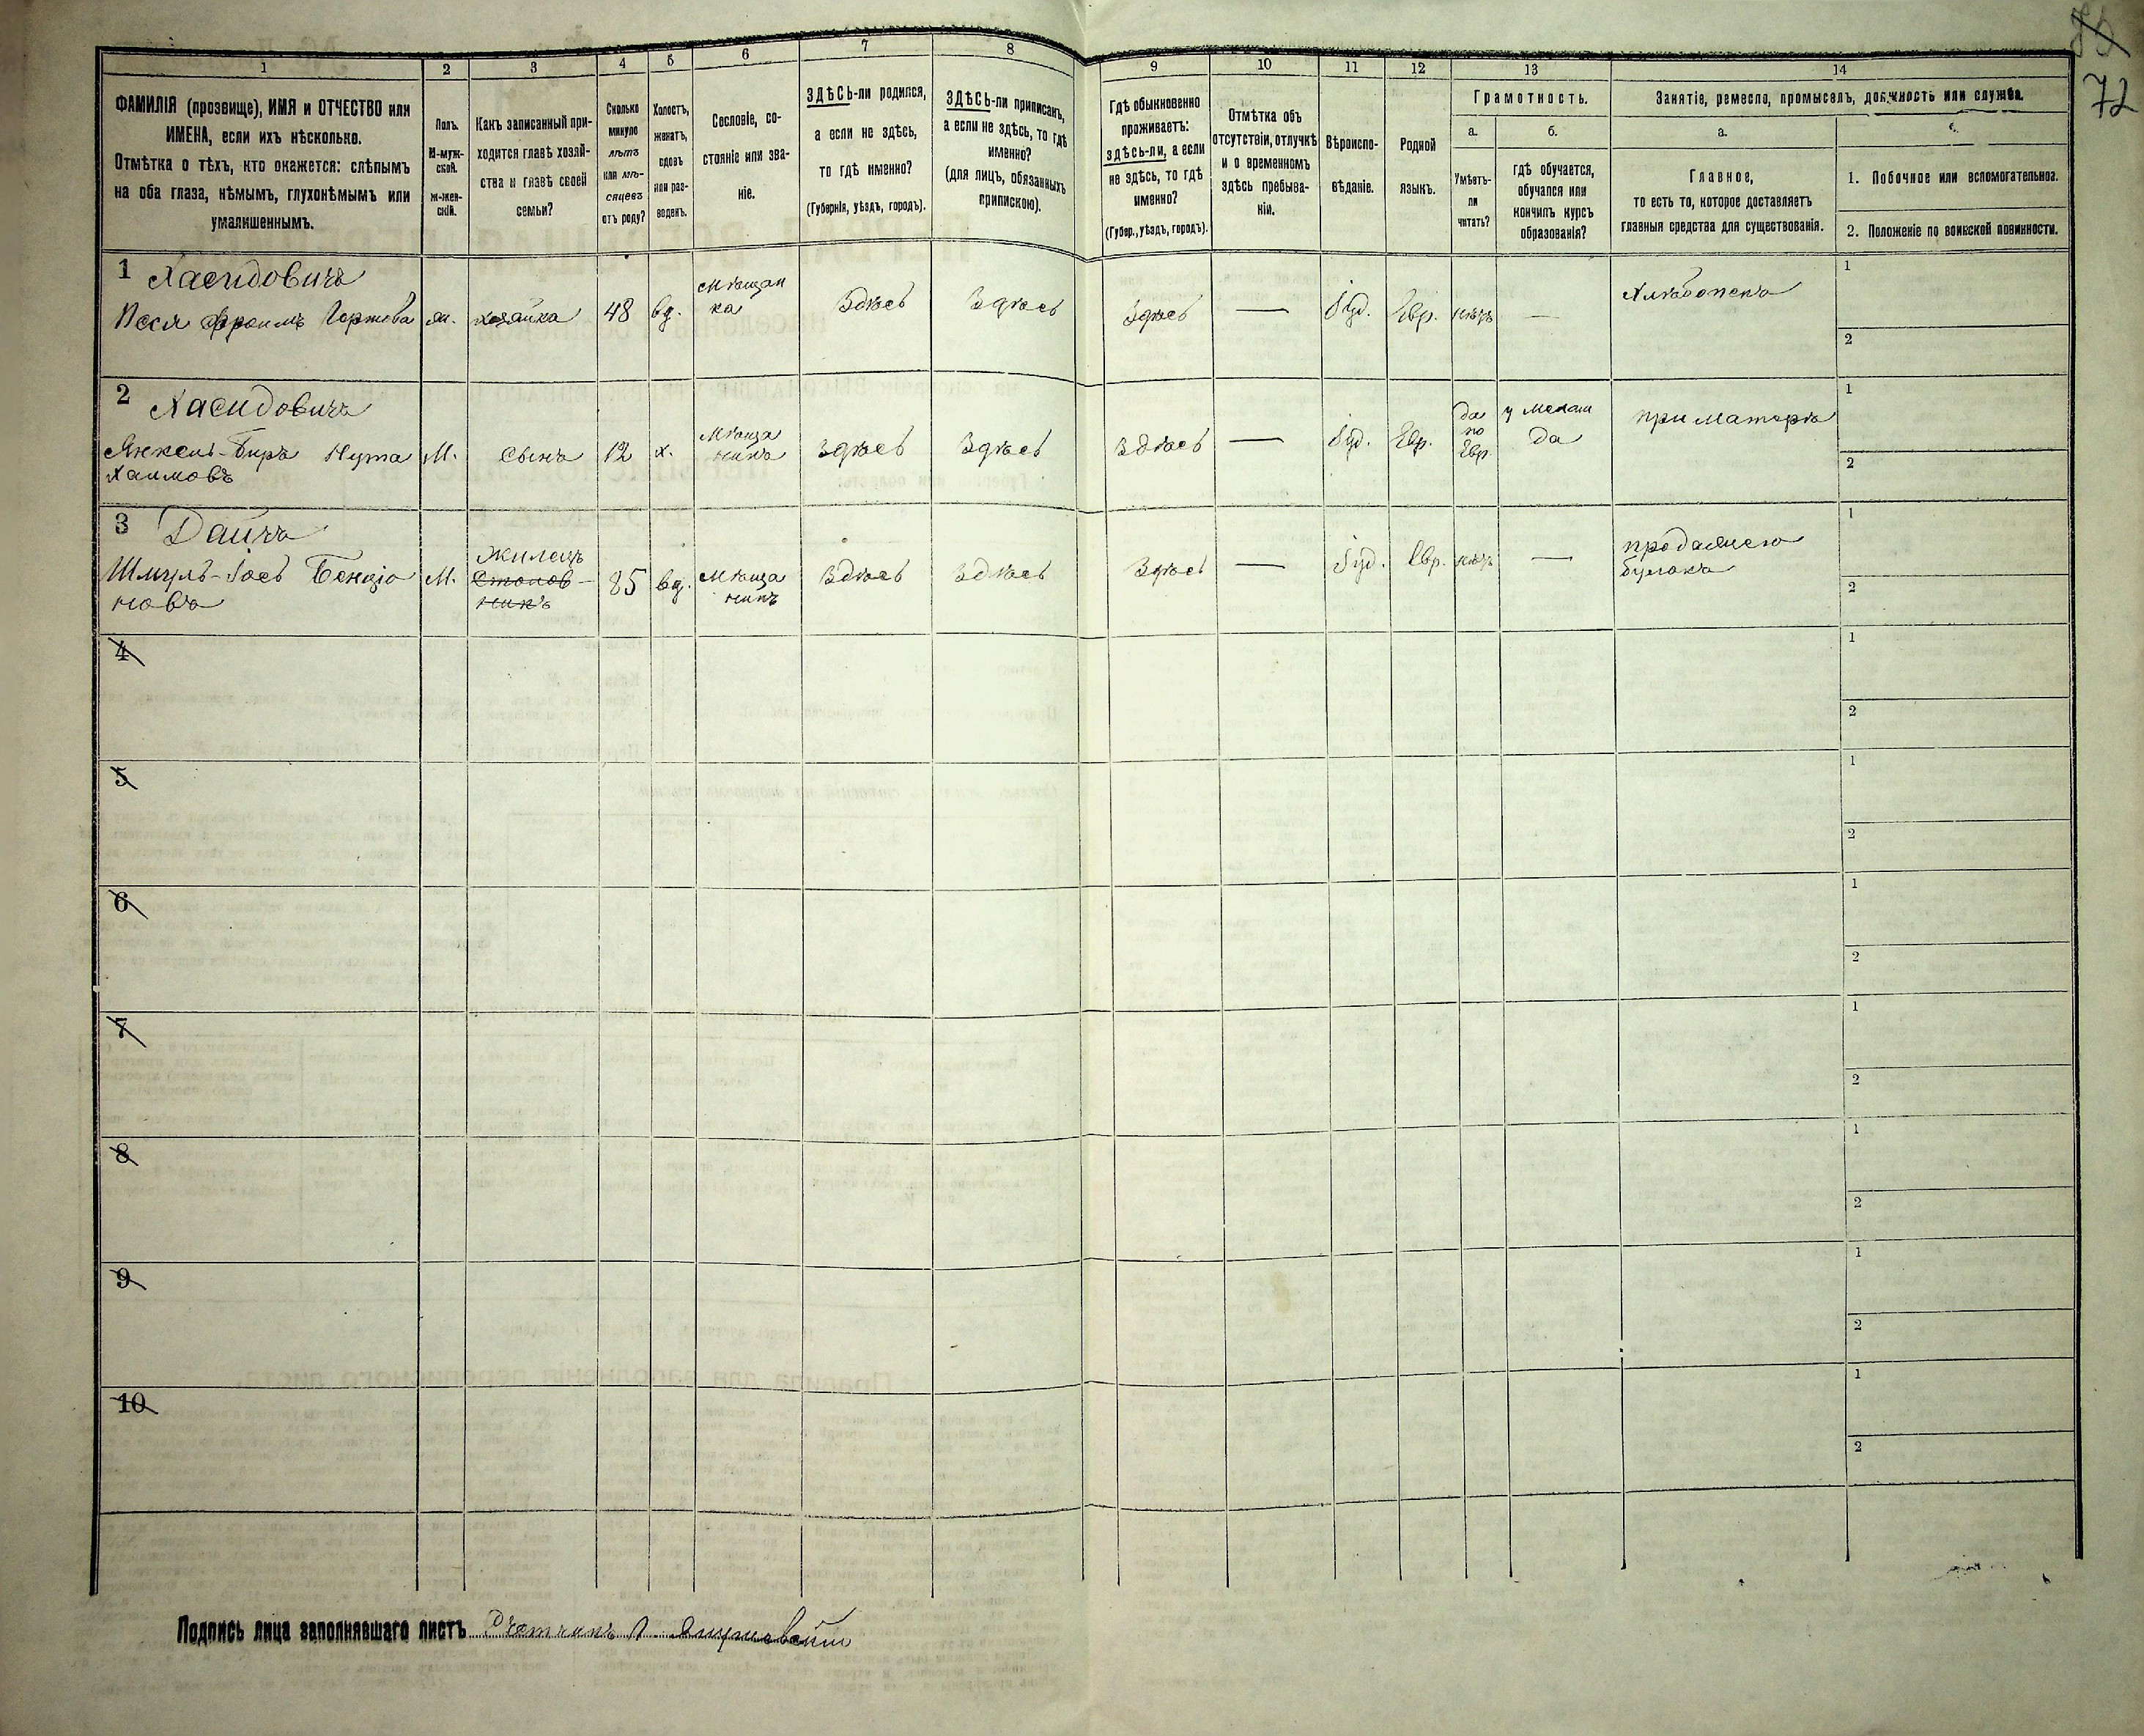 72
1 2 3 4 5 6 7 8 9 10 11 12 13 14
ФАМИЛІЯ (прозвище), ИМЯ и ОТЧЕСТВО или
ИМЕНА, если ихъ нѣсколько.
Отмѣтка о тѣхъ, кто окажется: слѣпымъ
на оба глаза, нѣмымъ, глухонѣмымъ или
умалишеннымъ.
Полъ.
М-муж-
ской.
ж-жен-
скій.
Какъ записанный при-
ходится главѣ хозяй-
ства и главѣ своей
семьи?
Сколько
минуло
лѣтъ
или мѣ-
сяцевъ
отъ роду?
Холостъ,
женатъ,
вдовъ
или раз-
веденъ.
Сословіе, со-
стояніе или зва-
ніе.
ЗДѢСЬ-ли родился,
а если не здѣсь,
то гдѣ именно?
(Губернія, уѣздъ, городъ).
ЗДѢСЬ-ли приписанъ,
а если не здѣсь, то гдѣ
именно?
(для лицъ, обязанныхъ
припискою).
Гдѣ обыкновенно
проживаетъ:
здѣсь-ли, а если
не здѣсь, то гдѣ
именно?
(Губер., уѣздъ, городъ).
Отмѣтка объ
отсутствіи, отлучкѣ
и о временномъ
здѣсь пребыва-
ніи.
Вѣроиспо-
вѣданіе.
Родной
языкъ.
Грамотность.
а.
Умѣетъ-
ли
читать?
б.
гдѣ обучается,
обучался или
кончилъ курсъ
образованія?
Занятіе, ремесло, промыселъ, должность или служба.
а.
Главное,
то есть то, которое доставляетъ
главныя средства для существованія.
1. Побочное или вспомогательное.
2. Положеніе по воинской повинности.
1 Хасидовичъ
Песя Фроимъ ж. хозяйка 48 вд. мѣщан
ка Здѣсь Здѣсь Здѣсь — Іуд. Евр. нѣтъ — 1
2
2 Хасидовичъ
Нута М. сынъ 12 х. мѣща
нинъ здѣсь здѣсь здѣсь — Іуд. Евр. да
по
Евр. у мелам
да при матери 1
2
Хаимовъ
3 Дайчъ
Шмуль-Іось Бенціо
новъ М. Жилецъ
85 вд. мѣща
нинъ здѣсь здѣсь здѣсь — Іуд. Евр. нѣтъ — продажею
булокъ 1
2
4 1
2
5 1
2
6 1
2
7 1
2
8 1
2
9 1
2
10 1
2
Подпись лица заполнявшаго листъ